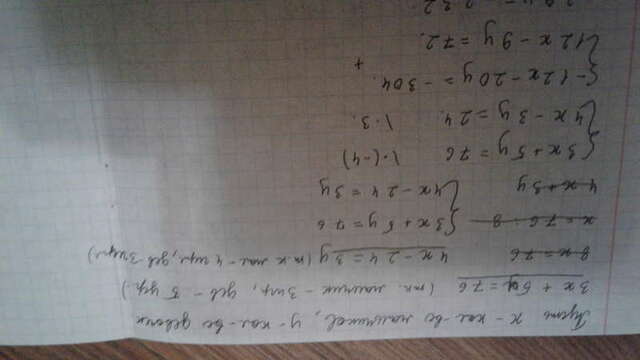 Пусть x - кол-во мальчиков, y - кол-во девочек
3x + 5y = 76 (т.к. мальчик - 3 , дев - 5 )
8x = 76 4x - 24 = 3y (т.к. мал - 4 , дев 3 )
x = 76 : 8 {3x + 5y = 76
4x + 3y {4x - 24 = 3y
{3x + 5y = 76 |·(-4)
{4x - 3y = 24. |·3.
{-12x - 20y = -304. +
{12x - 9y = 72.